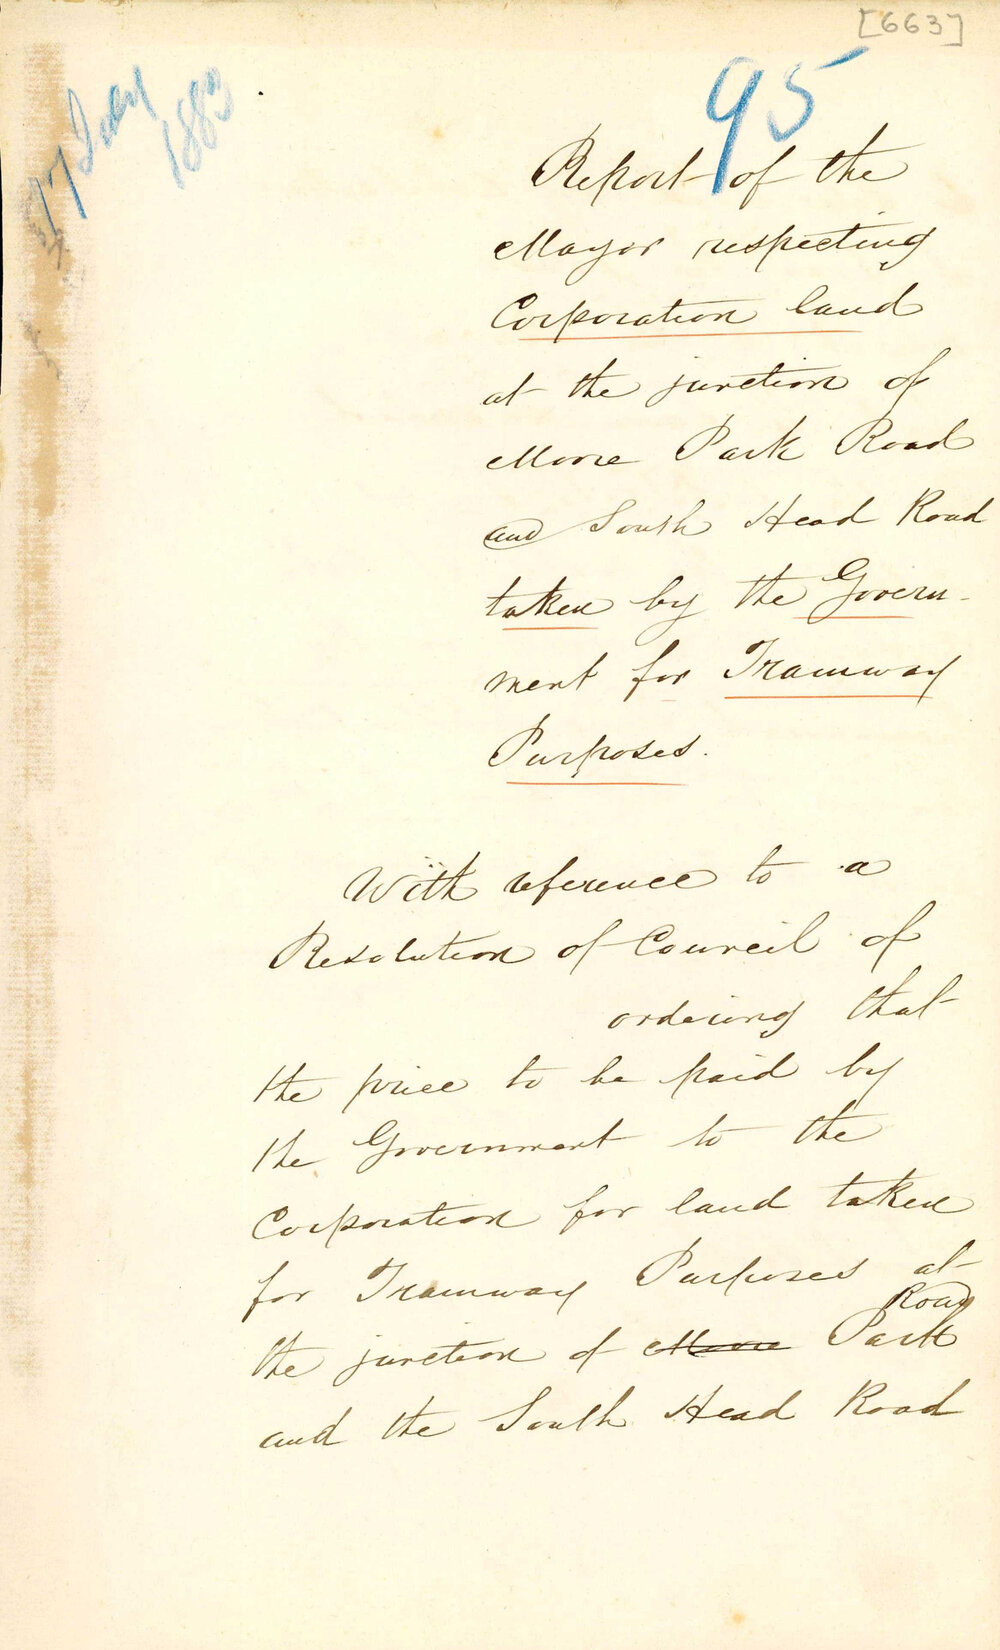 [663]
95
17 July
1883
Report of the
Mayor respecting
Corporation land
at the junction of
Moore Park Road
and South Head Road
taken by the Govern-
ment for Tramway
Purposes.
With reference to a
Resolution of Council of
ordering that
the price to be paid by
the Government to the
Corporation for land taken
for Tramway Purposes at
Road
the junction of Moore Park
and the South Head Road